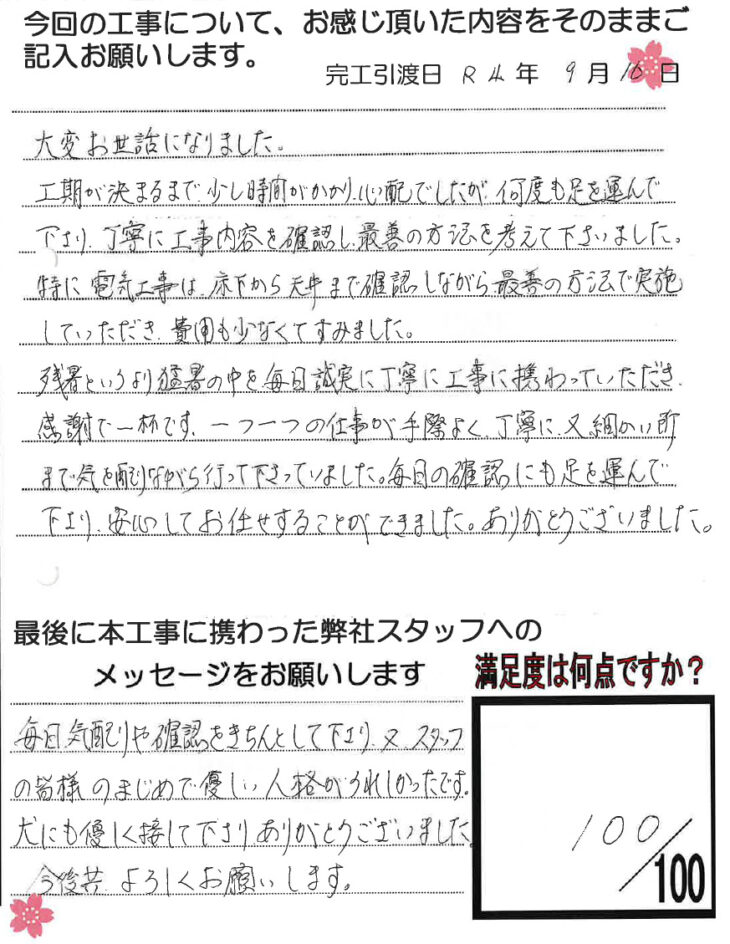 今回の工事について、お感じ頂いた内容をそのままご
記入お願いします。
完工引渡日 R4年 9月16日
大変お世話になりました。
工期が決まるまで、少し時間がかかり、心配でしたが、何度も足を運んで
下さり、丁寧に工事内容を確認し、最善の方法を考えて下さいました。
特に電気工事は、床下から天井まで確認しながら最善の方法で実施
していただき、費用も少なくてすみました。
残暑というより猛暑の中を毎日誠実に丁寧に工事に携わっていただき、
感謝で一杯です。一つ一つの仕事が手際よく、丁寧に、又細かい所
まで気を配りながら行って下さっていました。毎日の確認にも足を運んで
下さり、安心してお任せすることができました。ありがとうございました。
最後に本工事に携わった弊社スタッフへの
メッセージをお願いします
満足度は何点ですか?
毎日気配りや確認をきちんとして下さり、又、スタッフ
の皆様のまじめで優しい人格がうれしかったです。
犬にも優しく接して下さりありがとうございました。
今後共、よろしくお願いします。
100/100